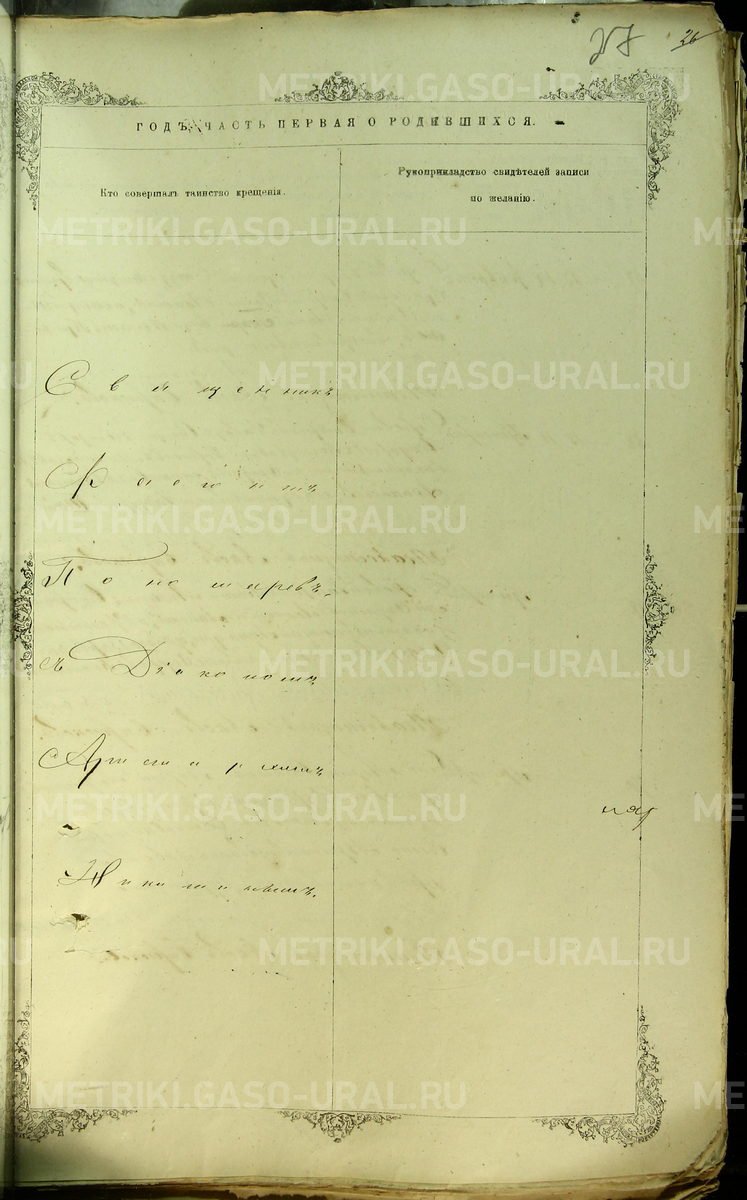 27 26
ГОДЪ, ЧАСТЬ ПЕРВАЯ О РОДИВШИХСЯ.
Кто совершалъ таинство крещенія.
Рукоприкладство свидѣтелей записи
по желанію.
Священникъ
Пономаревъ
съ Діакономъ
Аристархомъ
METRIKI.GASO-URAL.RU